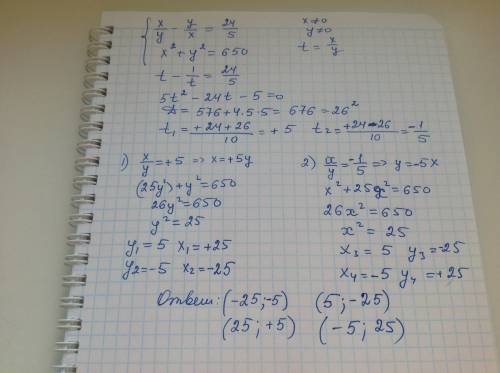 x/y - y/x = 24/5    x≠0
x² + y² = 650    y≠0
t = x/y
t - 1/t = 24/5
5t² - 24t - 5 = 0
D = 576 + 4·5·5 = 676 = 26²
t₁ = (+24+26)/10 = +5    t₂ = (+24-26)/10 = -1/5
1) x/y = +5 => x = +5y
(25y²) + y² = 650
26y² = 650
y² = 25
y₁ = 5  x₁ = +25
y₂ = -5  x₂ = -25
2) x/y = -1/5 => y = -5x
x² + 25x² = 650
26x² = 650
x² = 25
x₃ = 5  y₃ = -25
x₄ = -5  y₄ = +25
Ответ: (-25; -5)  (5; -25)
(25; +5)  (-5; 25)